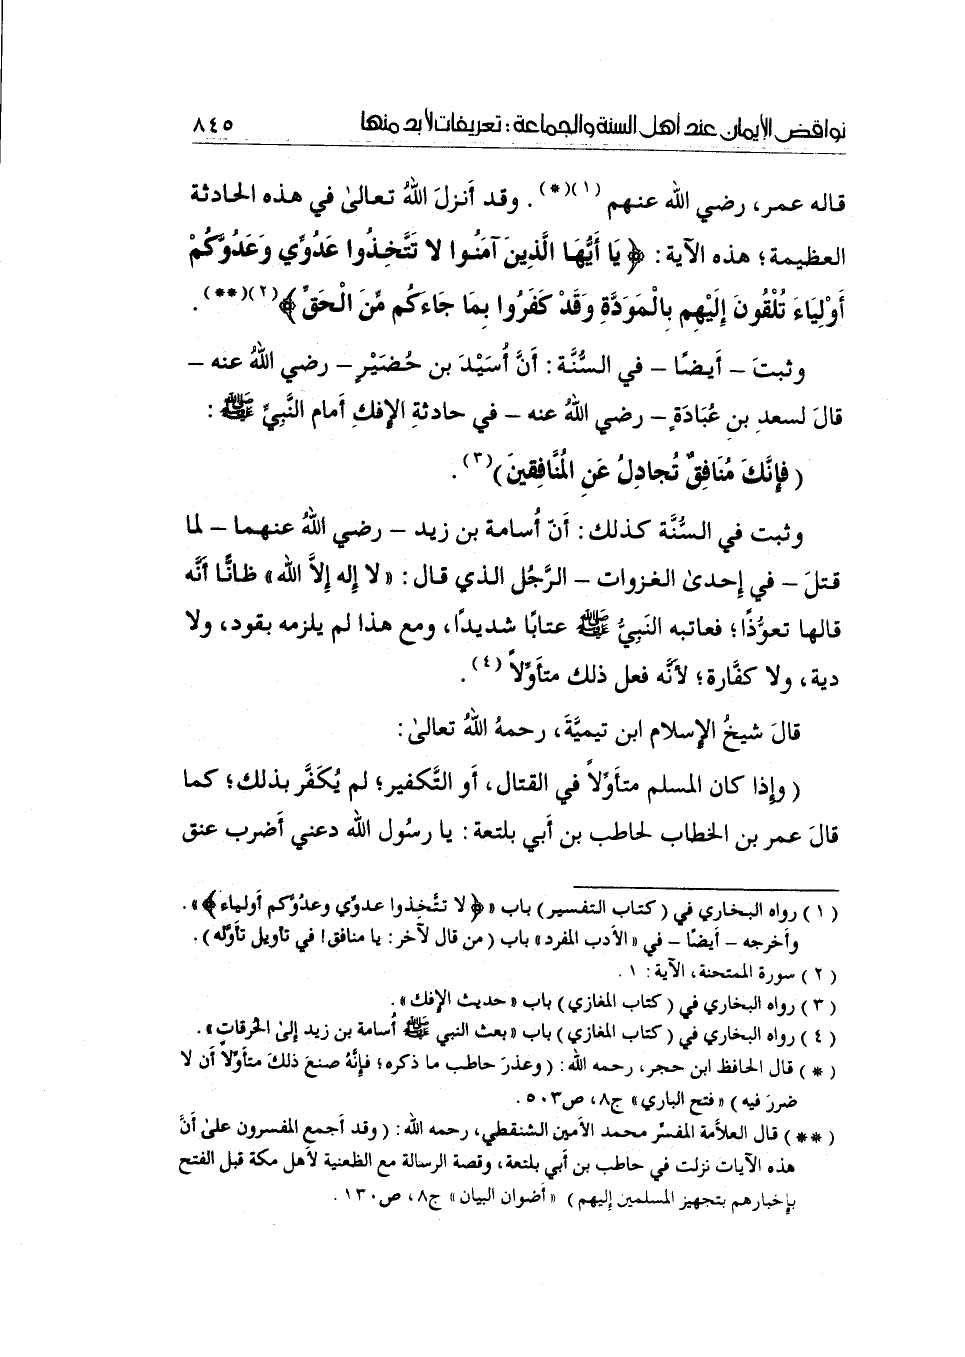 نواقض الإيمان عند أهل السنة والجماعة : تعريفات لابد منها ٨٤٥
قاله عمر، رضي الله عنهم (١)(*) . وقد أنزلَ اللهُ تعالىٰ في هذه الحادثة
العظيمة؛ هذه الآية : ﴿ يَا أَيُّهَا الَّذِينَ آمَنُوا لا تَتَّخِذُوا عَدُوِّي وَعَدُوَّكُمْ
أَوْلِيَاءَ تُلْقُونَ إِلَيْهِم بِالْمَوَدَّةِ وَقَدْ كَفَرُوا بِمَا جَاءَكُم مِّنَ الْحَقِّ ﴾(٢)(**) .
وثبتَ – أيضًا – في السُّنَّة : أنَّ أُسَيْدَ بن حُضَيْرٍ – رضي اللهُ عنه –
قالَ لسعدِ بن عُبَادَةٍ – رضي اللهُ عنه – في حادثةِ الإفكِ أمام النَّبِيِّ ﷺ :
( فإنَّكَ مُنَافِقٌ تُجادِلُ عَنِ المُنَّافِقينَ )(٣) .
وثبت في السُّنَّة كذلك : أنّ أُسامة بن زيد – رضي اللهُ عنهما – لما
قتلَ – في إحدىٰ الغزوات – الرَّجُل الذي قال : « لا إله إلاَّ الله » ظانًّا أنَّه
قالها تعوُّذًا؛ فعاتبه النَبِيُّ ﷺ عتابًا شديدًا، ومع هذا لم يلزمه بقود، ولا
دية، ولا كفَّارة؛ لأنَّه فعل ذلك متأوِّلاً (٤) .
قالَ شيخُ الإسلام ابن تيميَّةَ، رحمهُ اللهُ تعالىٰ :
( وإذا كان المسلم متأوِّلاً في القتال، أو التَّكفير؛ لم يُكَفَّر بذلك؛ كما
قالَ عمر بن الخطاب لحاطب بن أبي بلتعة : يا رسُول الله دعني أضرب عنق
( ١ ) رواه البخاري في ( كتاب التفسير ) باب « ﴿ لا تتَّخِذوا عدوِّي وعدُوَّكم أولياء ﴾ » .
وأخرجه – أيضًا – في « الأدب المفرد » باب ( من قال لآخر : يا منافق! في تأويل تأوّله ) .
( ٢ ) سورة الممتحنة، الآية : ١ .
( ٣ ) رواه البخاري في ( كتاب المغازي ) باب « حديث الإفك » .
( ٤ ) رواه البخاري في ( كتاب المغازي ) باب « بعث النبي ﷺ أُسامة بن زيد إلىٰ الحُرقاتِ » .
( * ) قال الحافظ ابن حجر، رحمه الله : ( وعذرَ حاطب ما ذكره؛ فإنَّهُ صنعَ ذلكَ متأوِّلاً أن لا
ضررَ فيه ) « فتح الباري » ج٨، ص٥٠٣ .
( ** ) قال العلاَّمة المفسِّر محمد الأمين الشنقطي، رحمه الله : ( وقد أجمع المفسرون علىٰ أنَّ
هذه الآيات نزلت في حاطب بن أبي بلتعة، وقصة الرسالة مع الظعنية لأهل مكة قبل الفتح
بإخبارهم بتجهيز المسلمين إليهم ) « أضوان البيان » ج٨، ص١٣٠ .